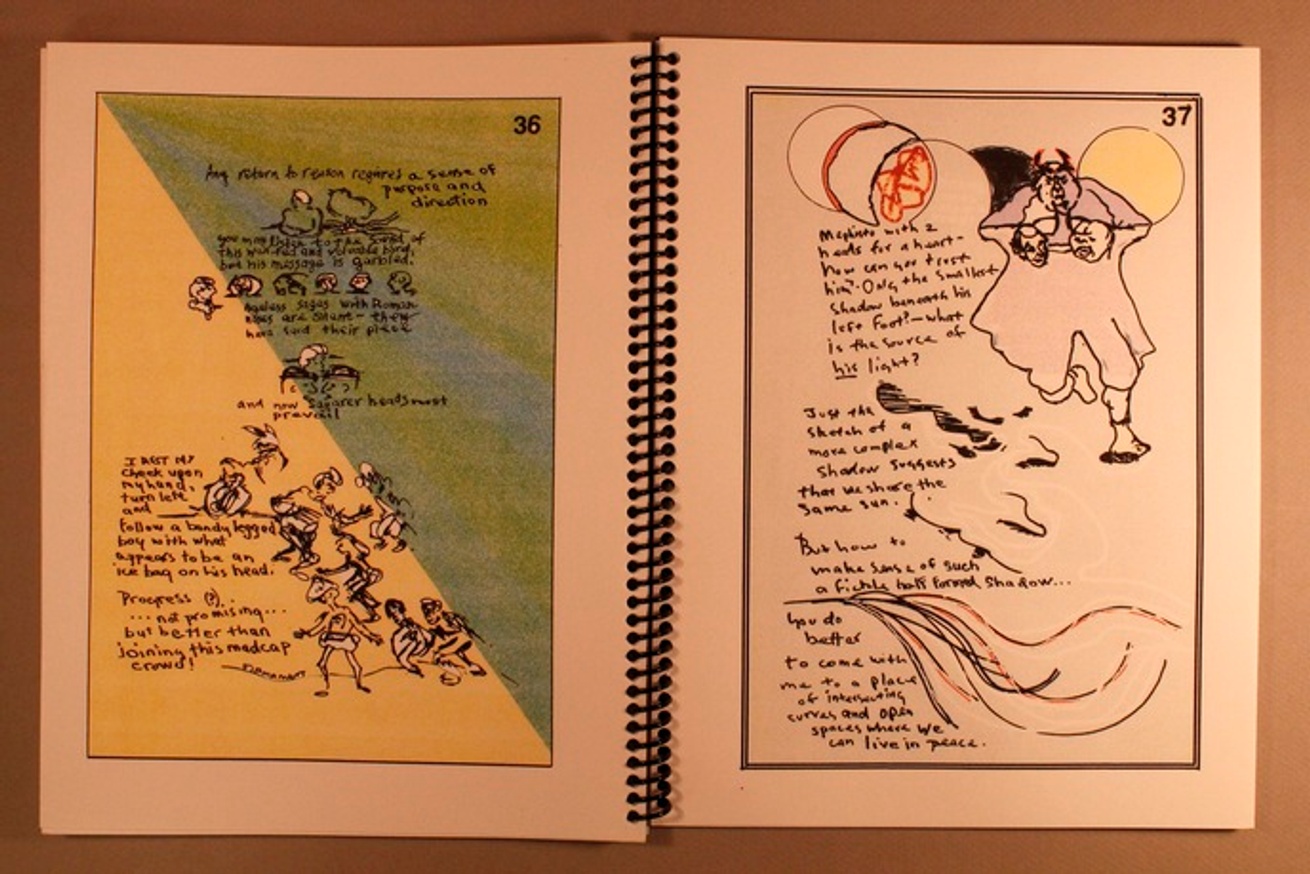 36
Any return to reason requires a sense of
purpose and
direction
you may listen to the sound of
this and voluble bard,
but his message is garbled.
ageless sages with Roman
noses are silent - they
have said their piece
and now squarer heads must
prevail
I REST MY
cheek upon
my hand,
turn left
and
follow a bandy legged
boy with what
appears to be an
ice bag on his head.
Progress (?)..
...not promising...
but better than
joining this madcap
crowd!
37
Mephisto with 2
heads for a heart-
how can you trust
him? Only the smallest
shadow beneath his
left foot! - what
is the source of
his light?
Just the
sketch of a
more complex
shadow suggests
that we share the
same sun.
But how to
make sense of such
a fickle half formed shadow...
you do
better
to come with
me to a place
of intersecting
curves and open
spaces where we
can live in peace.